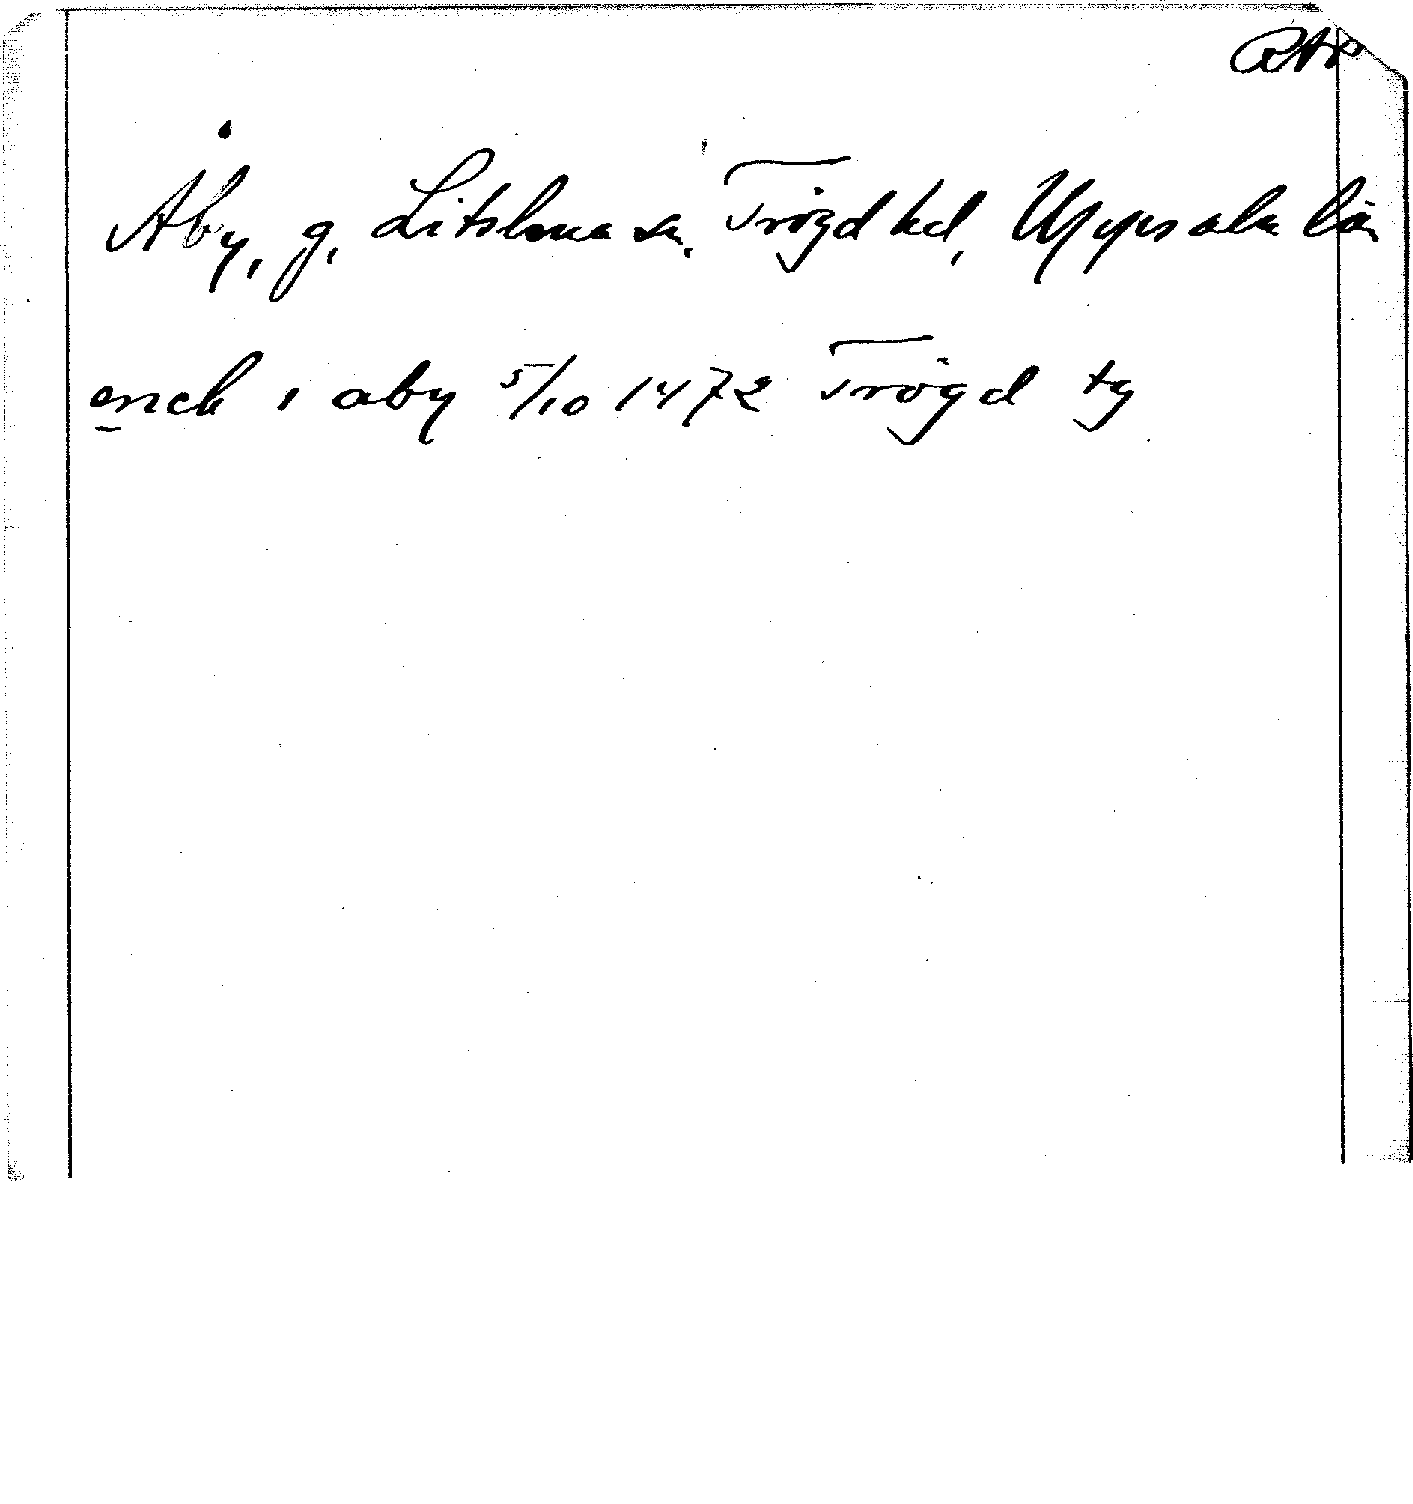 Åby, g, Litslena sn. Trögd hd, Uppsala län
erick i aby 5/10 1472 Trögd tg